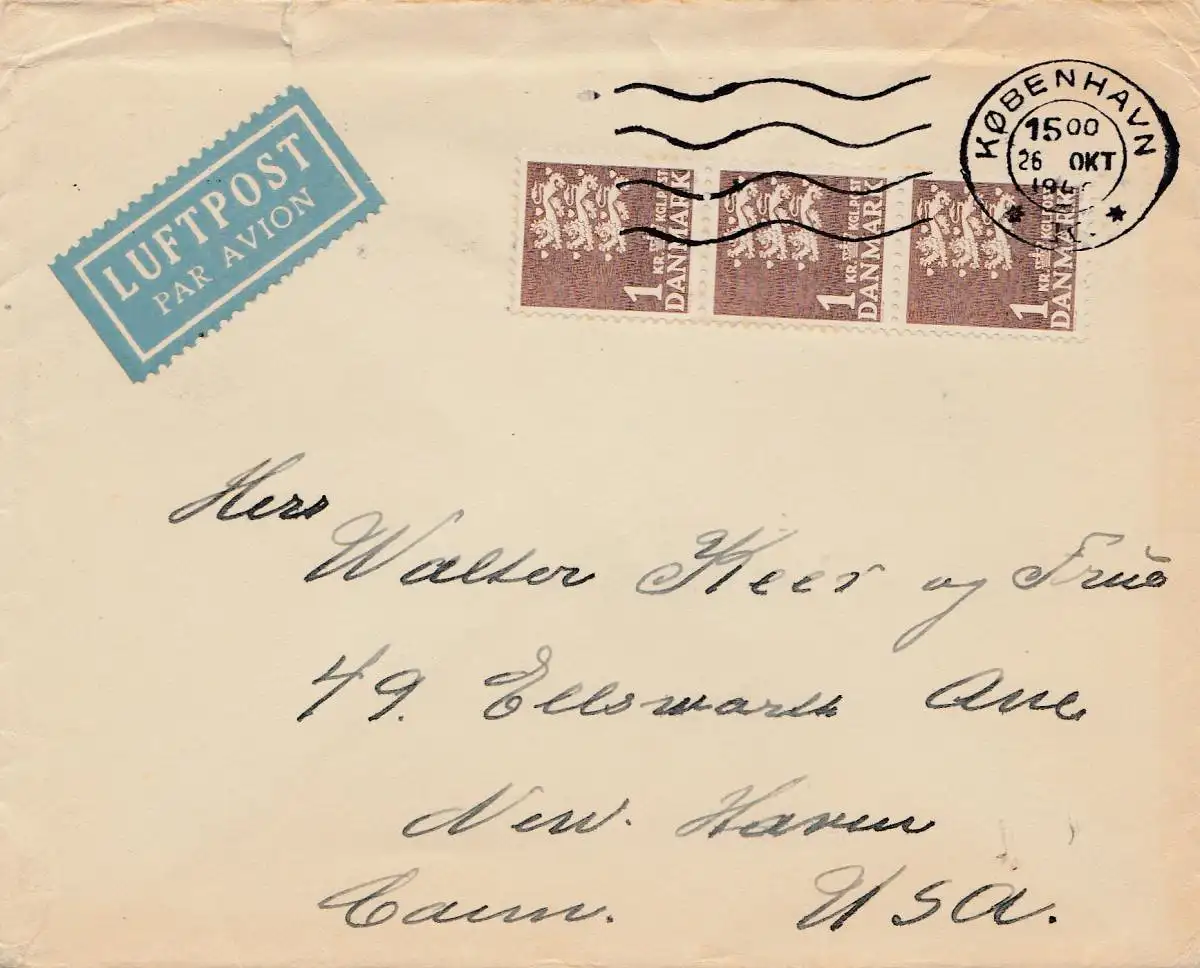 LUFTPOST
PAR AVION
KØBENHAVN
15 00
26 OKT
1 KR. DANMARK
1 KR. KGL POST DANMARK
1 KR. KGL POST DANMARK
Herr
Walter Keer og Frue
49. Ellswarth Ave
New. Haven
Conn. USA.